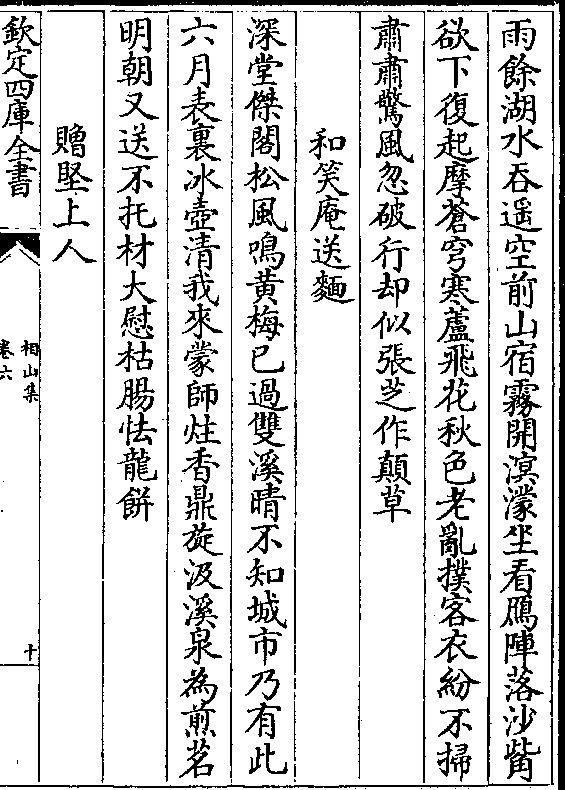 雨餘湖水吞遥空前山宿霧開溟濛坐看鴈陣落沙觜
欲下復起摩蒼穹寒蘆飛花秋色老亂撲客衣紛不掃
肅肅驚風忽破行却似張芝作顛草
和笑庵送麵
深堂傑閣松風鳴黄梅已過雙溪晴不知城市乃有此
六月表裏冰壺清我來蒙師炷香鼎旋汲溪泉為煎茗
明朝又送不托材大慰枯腸怯龍餅
贈堅上人
欽定四庫全書
相山集
卷六
十